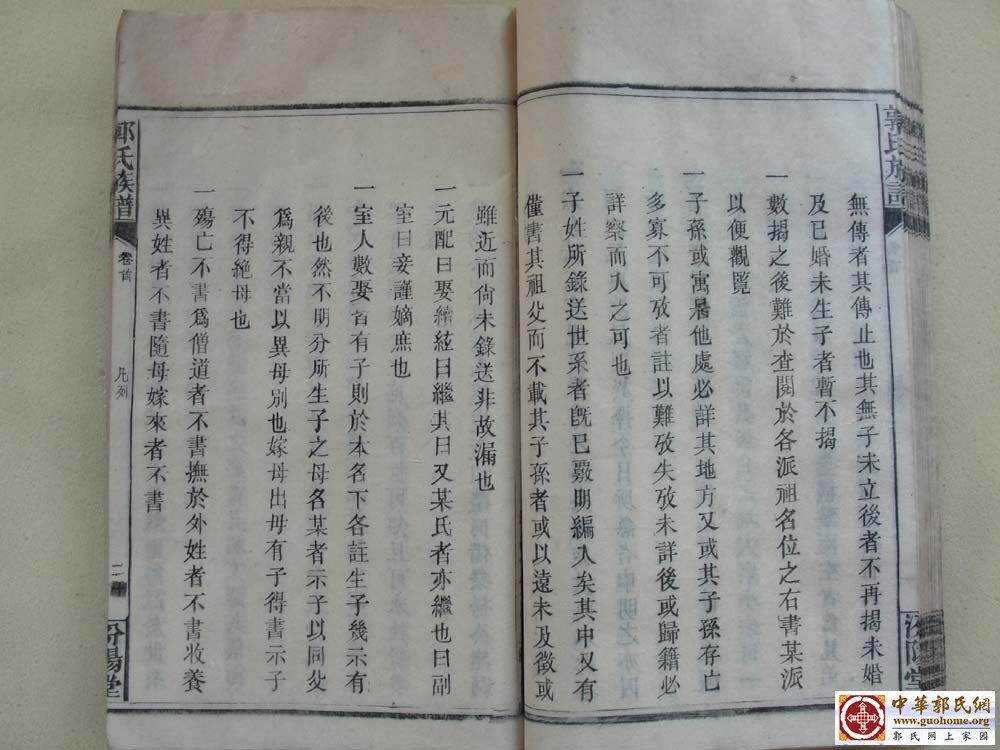 郭氏族譜
汾陽堂
無傳者其傳止也其無子未立後者不再揭未婚
及已婚未生子者暫不揭
一數揭之後難於查閱於各派祖名位之右書某派
以便觀覽
一子孫或寓暑他處必詳其地方又或其子孫存亡
多寡不可攷者註以難攷失攷未詳後或歸籍必
詳察而入之可也
一子姓所錄送世系者旣已覈明編入矣其中又有
僅書其祖父而不載其子孫者或以遠未及徵或
雖近而尙未錄送非故漏也
一元配曰娶繪絃曰繼其曰又某氏者亦繼也曰副
室曰妾謹嫡庶也
一室人數娶首有子則於本名下各註生子幾示有
後也然不明分所生子之母名某者示子以同父
爲親不當以異母別也嫁母出母有子得書示子
不得絶母也
一殤亡不書爲僧道者不書撫於外姓者不書收養
異姓者不書隨母嫁來者不書
郭氏族譜
卷首
凡列
二
汾陽堂
中華郭氏網
www.guohome.org
郭氏網上家園